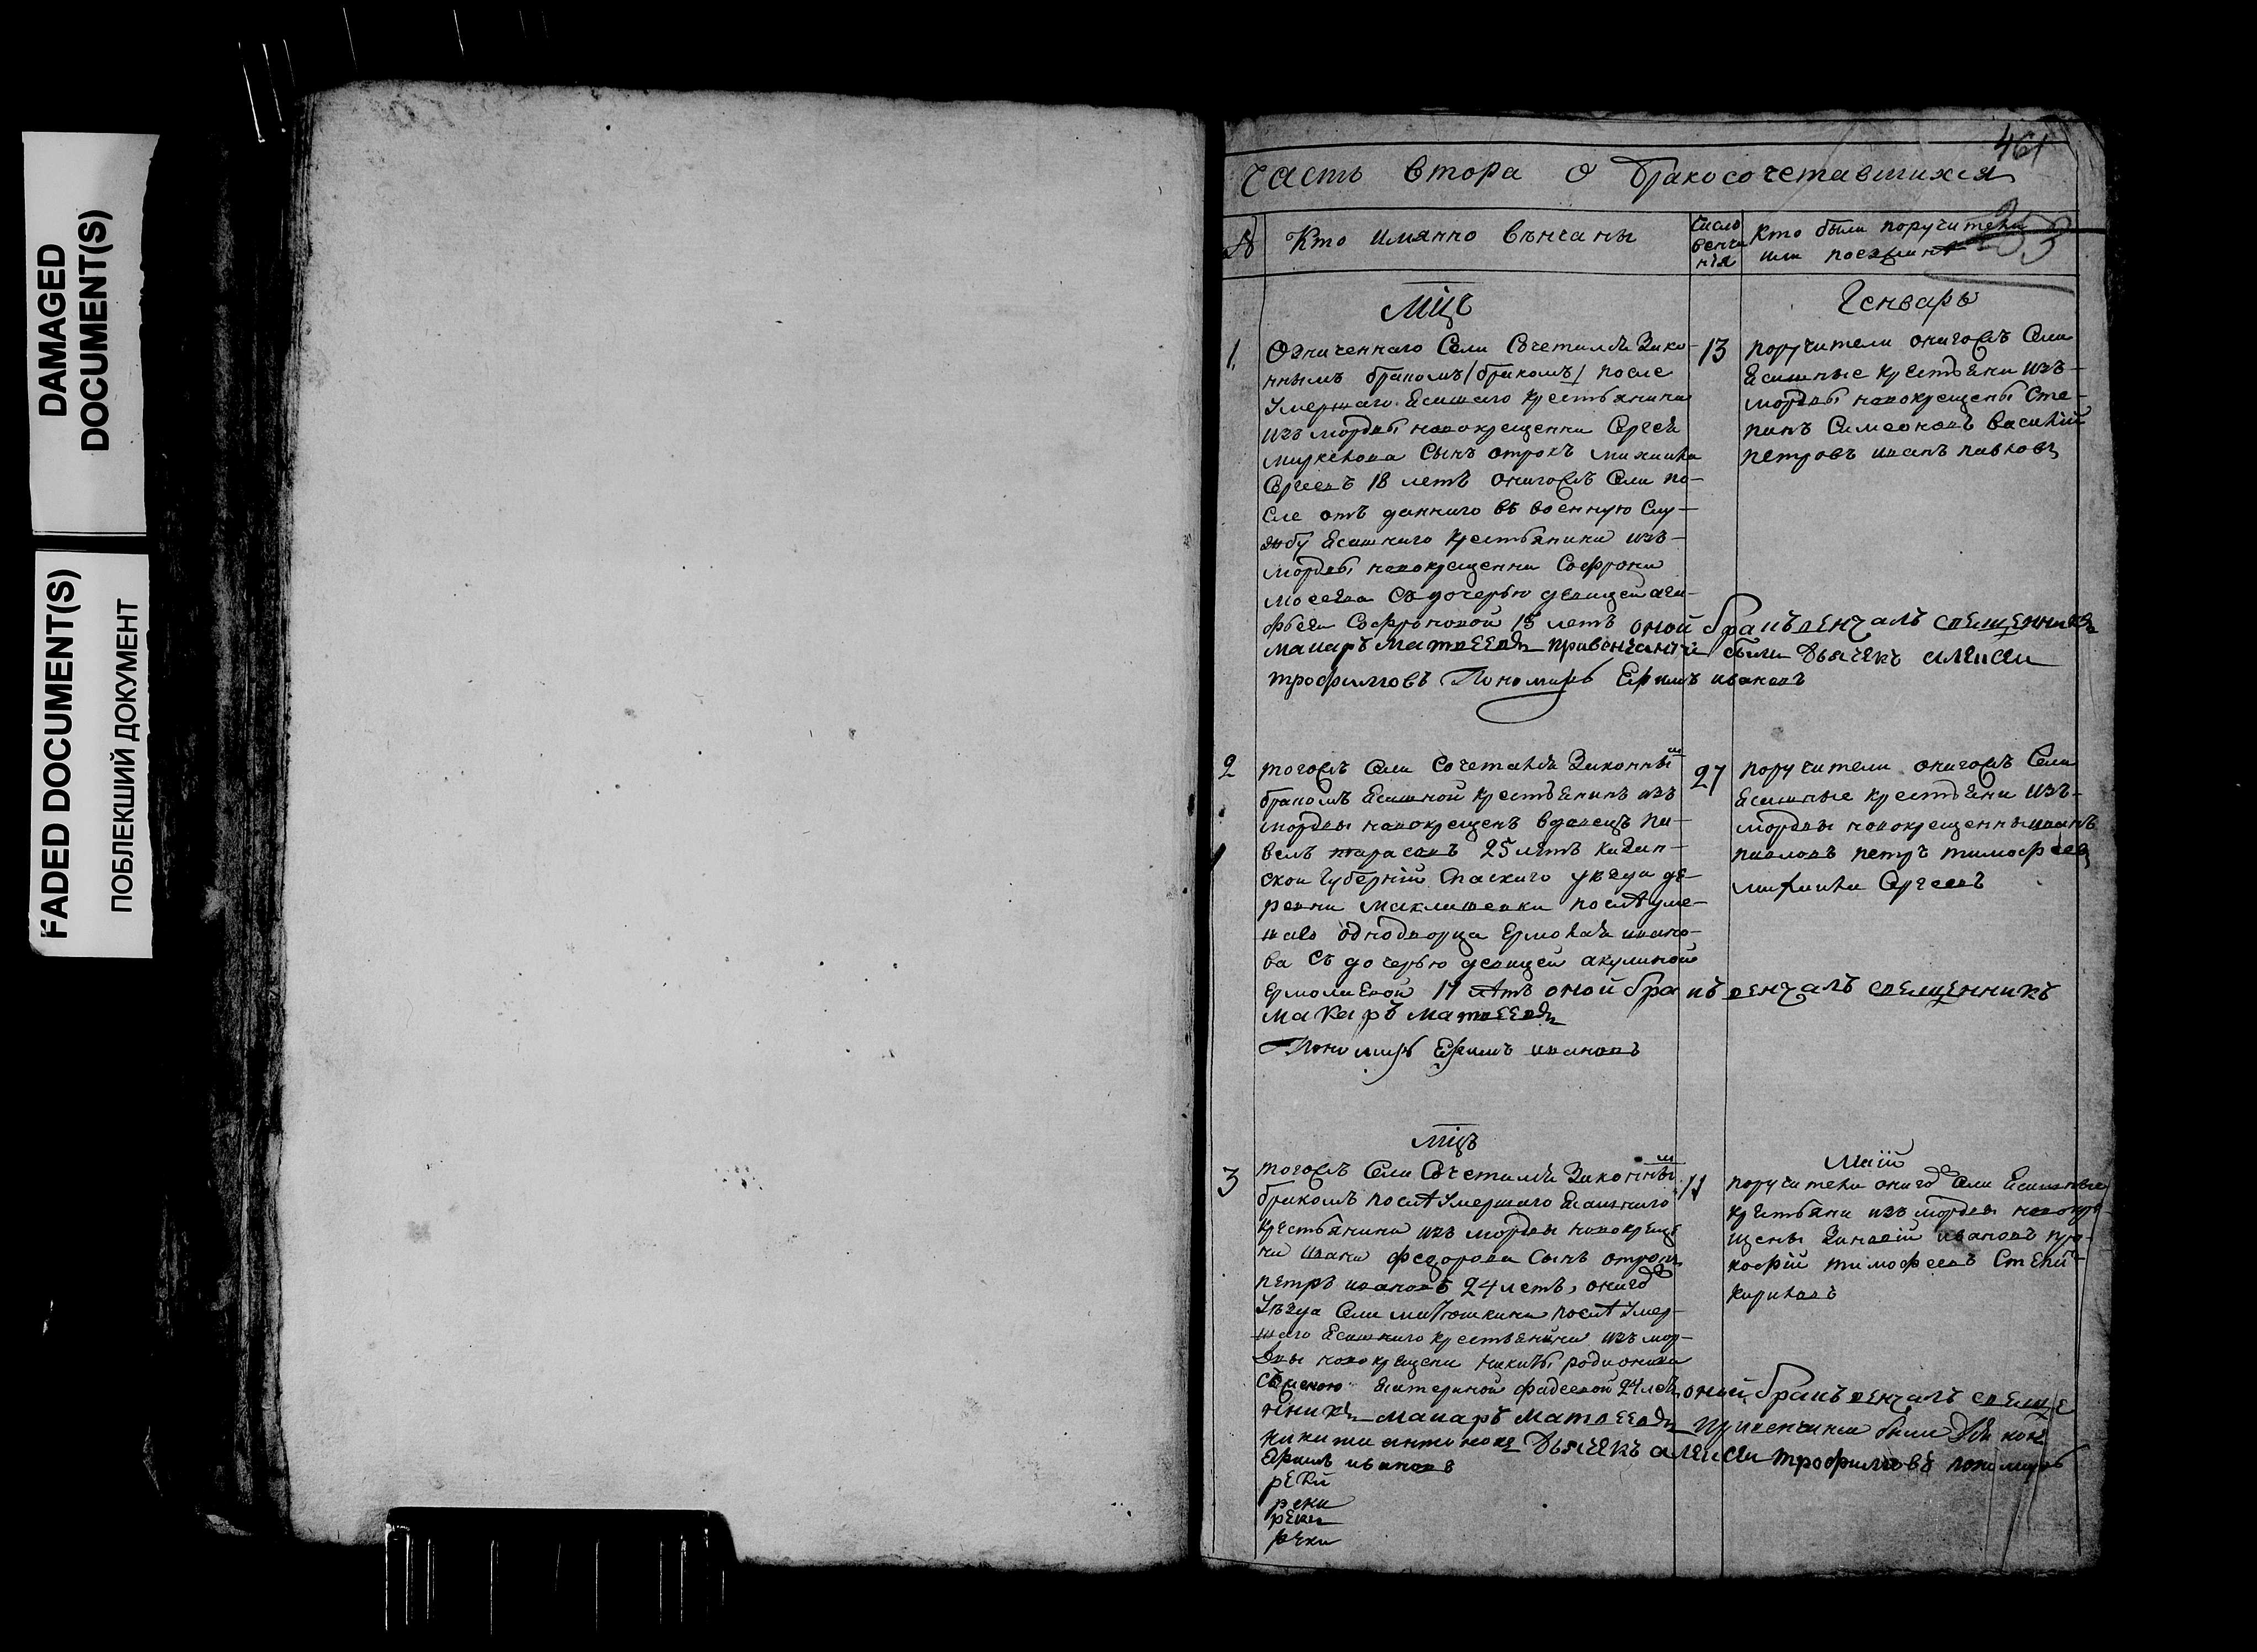 DAMAGED
DOCUMENT(S)
FADED DOCUMENT(S)
ПОБЛЕКШИЙ ДОКУМЕНТ
461
Часть втора о бракосочетавшихся
№
Кто имянно венчаны
Число
венча
нія
Кто были поручители
или поезжанѣ
253
Мцъ
Генварь
1.
Означеннаго села сочетался зако-
ннымъ бракомъ/бракомъ/ после
умершаго ясашаго крестьянина
изъ мордвы новокрещенна Сергея
сынъ отрокъ михаила
Сергеевъ 18 летъ онагожъ села по-
сле отъ даннаго въ военную слу-
жбу ясашнаго крестьянина изъ-
мордвы новокрещенна Софрона
мосеева съ дочерью девицей ага-
фьеи Софроновой 15 летъ оной бракъ венчалъ священникъ
макаръ матвеевъ при венчаніи были дьячекъ алексеи
трофимовъ Пономарь Ефимъ ивановъ
13
поручители онагожъ села
ясашные крестьяни изъ-
мордвы новокрещены Сте-
панъ Симеоновъ василій
петровъ иванъ павловъ
2
тогожъ села сочетался законны м
бракомъ ясашной крестьянинъ изъ
мордвы новокрещенъ вдовецъ па-
велъ тарасовъ 25 летъ казан-
скои губерніи спаскаго уезда де-
ревни после уме-
шаго однодворца Ермолая ивано-
ва съ дочерью девицеи акулиной
ермолаевой 17 летъ оной бракъ венчалъ священникъ
макаръ матвеевъ
Пономарь Ефимъ ивановъ
27
поручители онагожъ села
ясашные крестьяни изъ-
мордвы новокрещенны иванъ
павловъ петръ тимофеевъ
михаила Сергеевъ
мцъ
маій
3
тогожъ села сочетался законны м
бракомъ после умершаго ясашнаго
крестьянина изъ мордвы новокреще
на ивана федорова сынъ отрокъ
петръ ивановъ 24 летъ, онагожъ
уезда села матюшкина после умер-
шаго ясашнаго крестьянина изъ мор-
двы новокрещена никиты родионова
съ женою екатериной фадеевой 24 летъ оной бракъ венчалъ священ
нникъ макаръ матвеевъ при венчаніи были
никита антонова дьячекъ алексеи трофимовъ пономарь
Ефимъ ивановъ
реки
реки
реки
реки
11
поручители онагожъ села ясашные
крестьяни изъ мордвы новокре
щены ивановъ про-
кофій тимофеевъ степанъ
кириловъ